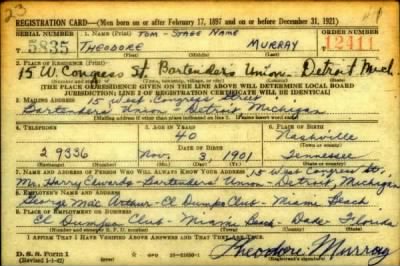 23
REGISTRATION CARD—(Men born on or after February 17, 1897 and on or before December 31, 1921)
SERIAL NUMBER 1. NAME (Print) TOM - STAGE NAME ORDER NUMBER
T 5835 THEODORE MURRAY 12411
(First) (Middle) (Last)
2. PLACE OF RESIDENCE (Print)
15 W. Congress St. Bartenders Union - Detroit Mich.
(Number and street) (Town, township, village, or city) (County) (State)
[THE PLACE OF RESIDENCE GIVEN ON THE LINE ABOVE WILL DETERMINE LOCAL BOARD
JURISDICTION; LINE 2 OF REGISTRATION CERTIFICATE WILL BE IDENTICAL]
3. MAILING ADDRESS 15 West Congress Street
Bartenders Union - Detroit Michigan
4. TELEPHONE 5. AGE IN YEARS 6. PLACE OF BIRTH
40 Nashville
DATE OF BIRTH (Town or county)
2 9336 Nov. 3, 1901 Tennessee
(Exchange) (Number) (Mo.) (Day) (Yr.) (State or country)
7. NAME AND ADDRESS OF PERSON WHO WILL ALWAYS KNOW YOUR ADDRESS 15 West Congress St.,
Mr. Harry Edwards - Bartenders Union - Detroit, Michigan
8. EMPLOYER'S NAME AND ADDRESS
George Mac Arthur - Cl Dumps Club - Miami Beach
9. PLACE OF EMPLOYMENT OR BUSINESS
Cl Dumps Club - Miami Beach - Dade - Florida
(Number and street or R. F. D. number) (Town) (County) (State)
I AFFIRM THAT I HAVE VERIFIED ABOVE ANSWERS AND THAT THEY ARE TRUE.
D. S. S. Form 1
(Revised 1-1-42) (over) Theodore Murray